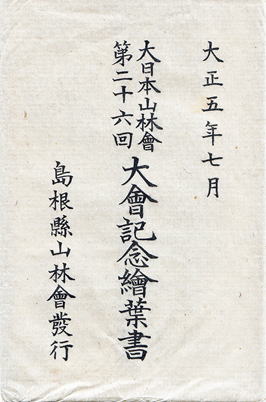 大正五年七月
大日本山林會
第二十六回
大會記念繪葉書
島根縣山林會發行